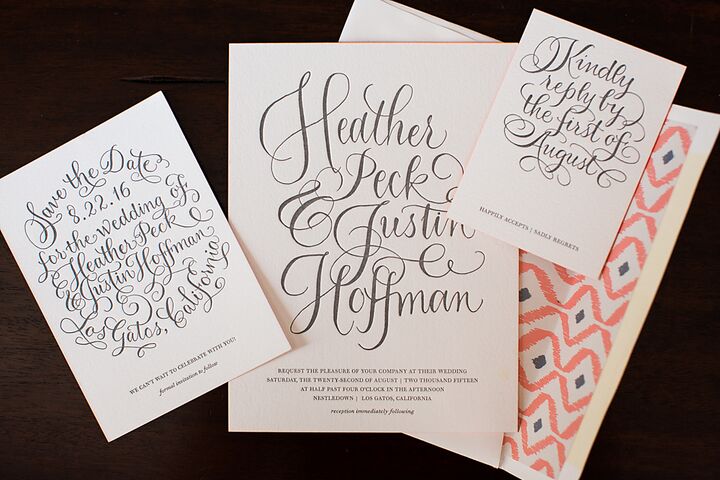 Save the Date
8.22.16
for the wedding of
Heather Peck
& Justin Hoffman
Los Gatos, California
WE CAN'T WAIT TO CELEBRATE WITH YOU!
formal invitation to follow
Heather
Peck
& Justin
Hoffman
REQUEST THE PLEASURE OF YOUR COMPANY AT THEIR WEDDING
SATURDAY, THE TWENTY-SECOND OF AUGUST | TWO THOUSAND FIFTEEN
AT HALF PAST FOUR O'CLOCK IN THE AFTERNOON
NESTLEDOWN | LOS GATOS, CALIFORNIA
reception immediately following
Kindly
reply by
the first of
August
HAPPILY ACCEPTS | SADLY REGRETS